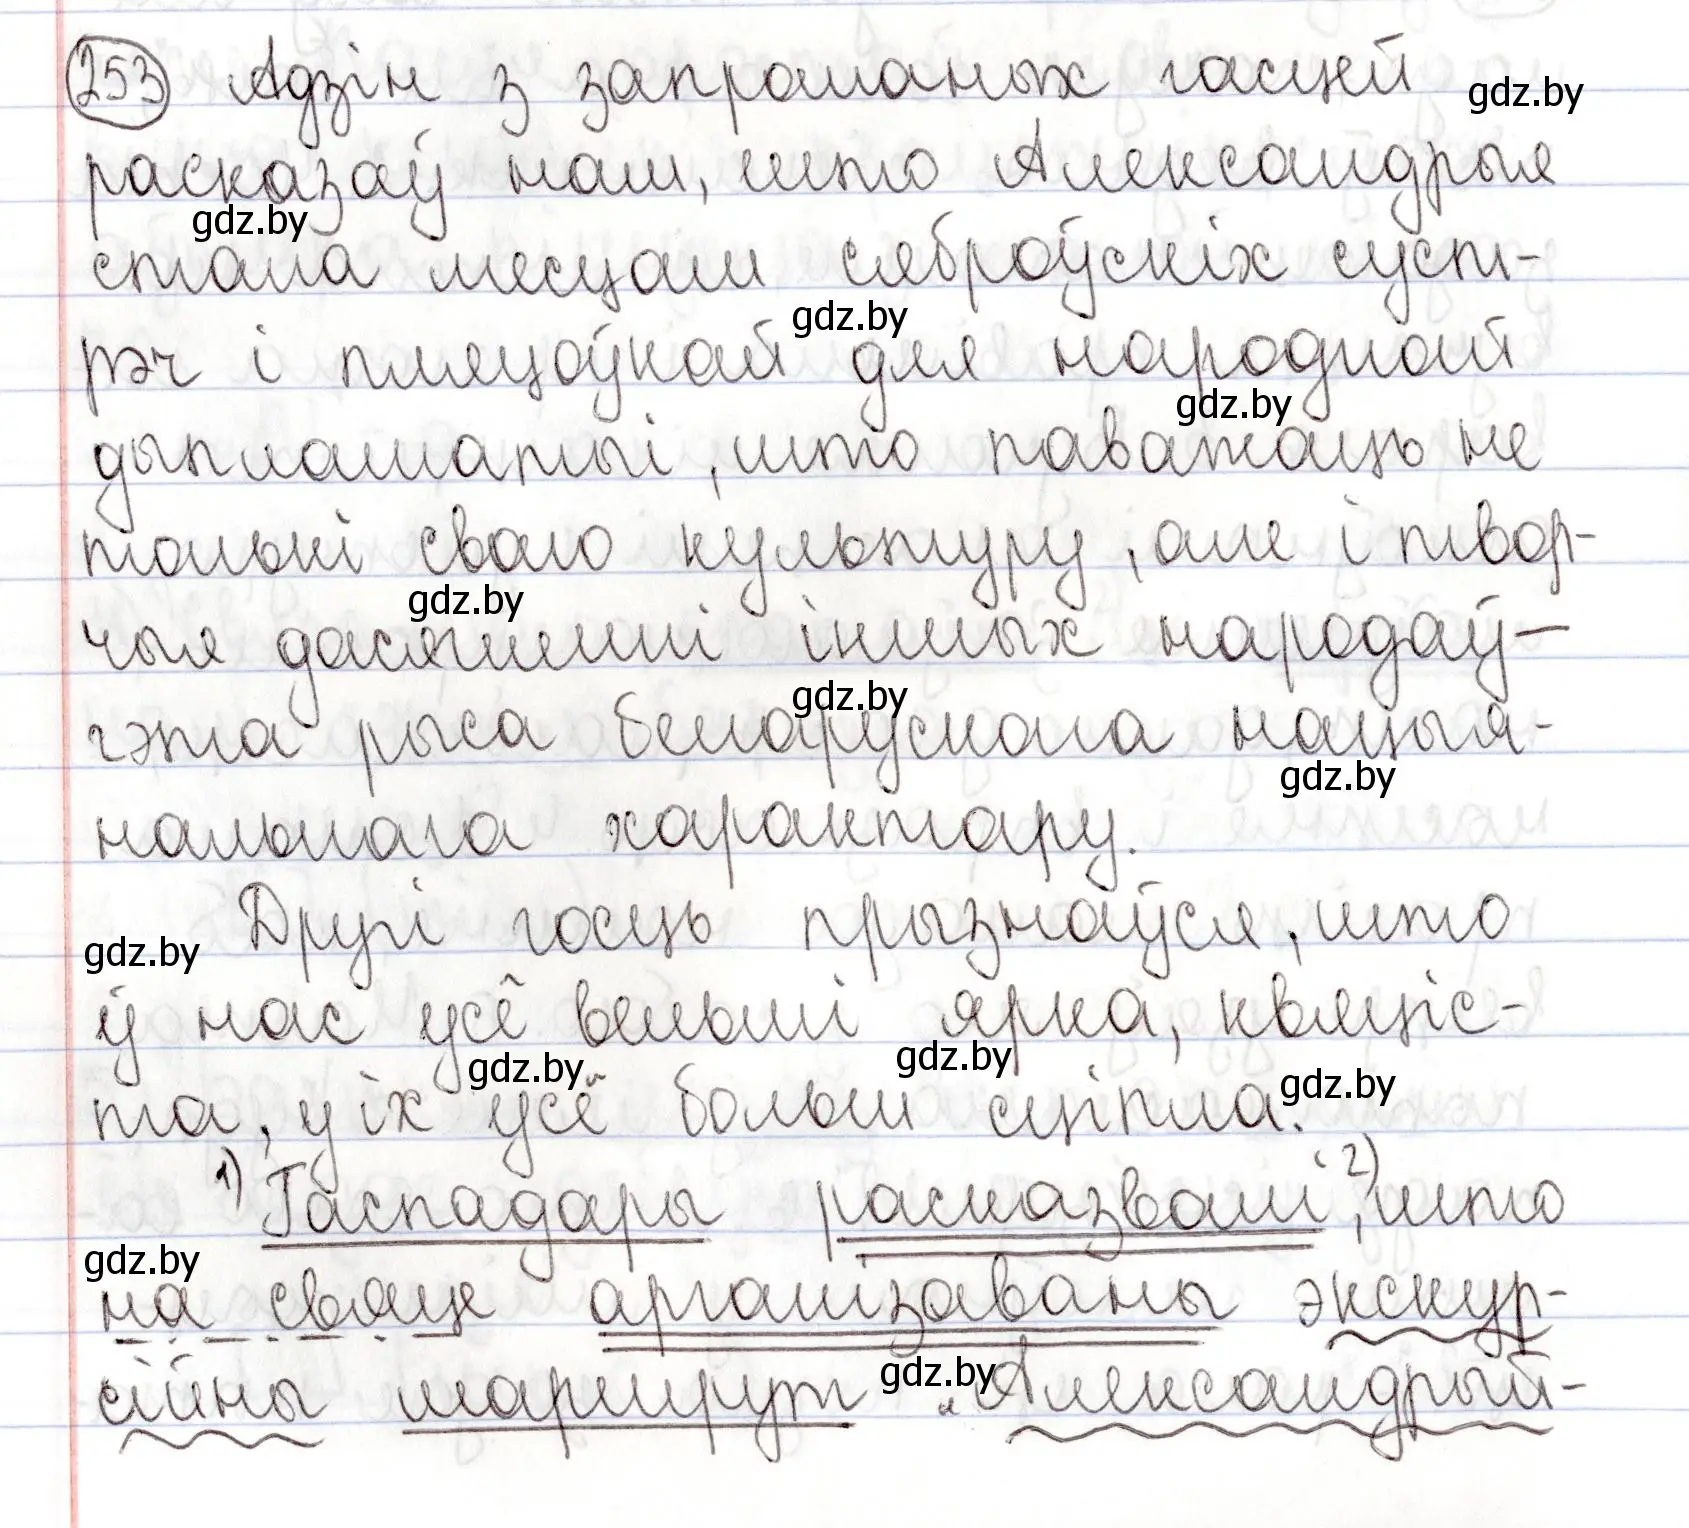 253 Адзін з запрошаных гасцей
gdz.by
расказаў нам, што Александрыя
gdz.by
стала месцам сяброўскіх суст-
gdz.by
рэч і пляцоўкай для народнай
gdz.by
дыпламатыі, што паважаць не
толькі сваю культуру, але і твор-
gdz.by
чыя дасягненні іншых народаў —
gdz.by
гэта рыса беларускага нацыя-
gdz.by
нальнага характару.
Другі госць прызнаўся, што
gdz.by
ў нас усё вельмі ярка, квяціс-
gdz.by gdz.by gdz.by
та, у іх усё больш сціпла.
1) Гаспадары расказвалі, 2) што
gdz.by
на свяце арганізаваны экскур-
gdz.by
сійны маршрут „Александрый-